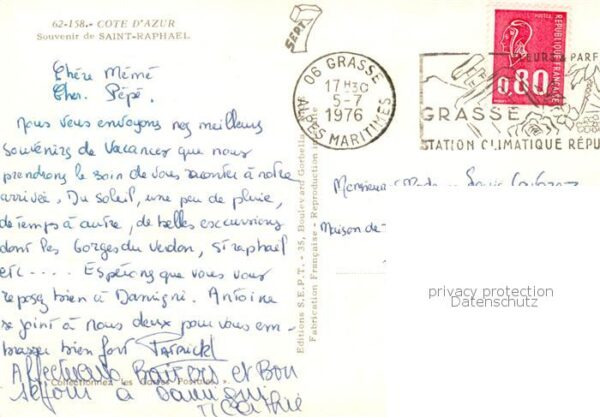 62-158.- COTE D'AZUR
Souvenir de SAINT-RAPHAEL
SEPT.
06 GRASSE
17 H30
5-7
1976
ALPES MARITIMES
REPUBLIQUE FRANCAISE
POSTES
0,80
FLEURS & PARF
GRASSE
STATION CLIMATIQUE RÉPU
Chère Mémé
Cher Pépé.
Nous vous envoyons nos meilleurs
souvenirs de vacances que nous
prendrons le soin de vous raconter à notre
arrivée. Du soleil, un peu de pluie,
de temps à autre, de belles excursions
dont les Gorges du Verdon, St raphaël
etc .... Espérons que vous vous
reposez bien à Damigni. Antoine
se joint à nous deux pour vous em-
brasser bien fort Patrick
Affectueux Baisers et Bon
séjour à Damigni
« Collectionnez les Cartes Postales ».
Editions S.E.P.T. - 35, Boulevard Gorbella
Fabrication Française - Reproduction
Monsieur Madame Louis
Maison de
privacy protection
Datenschutz